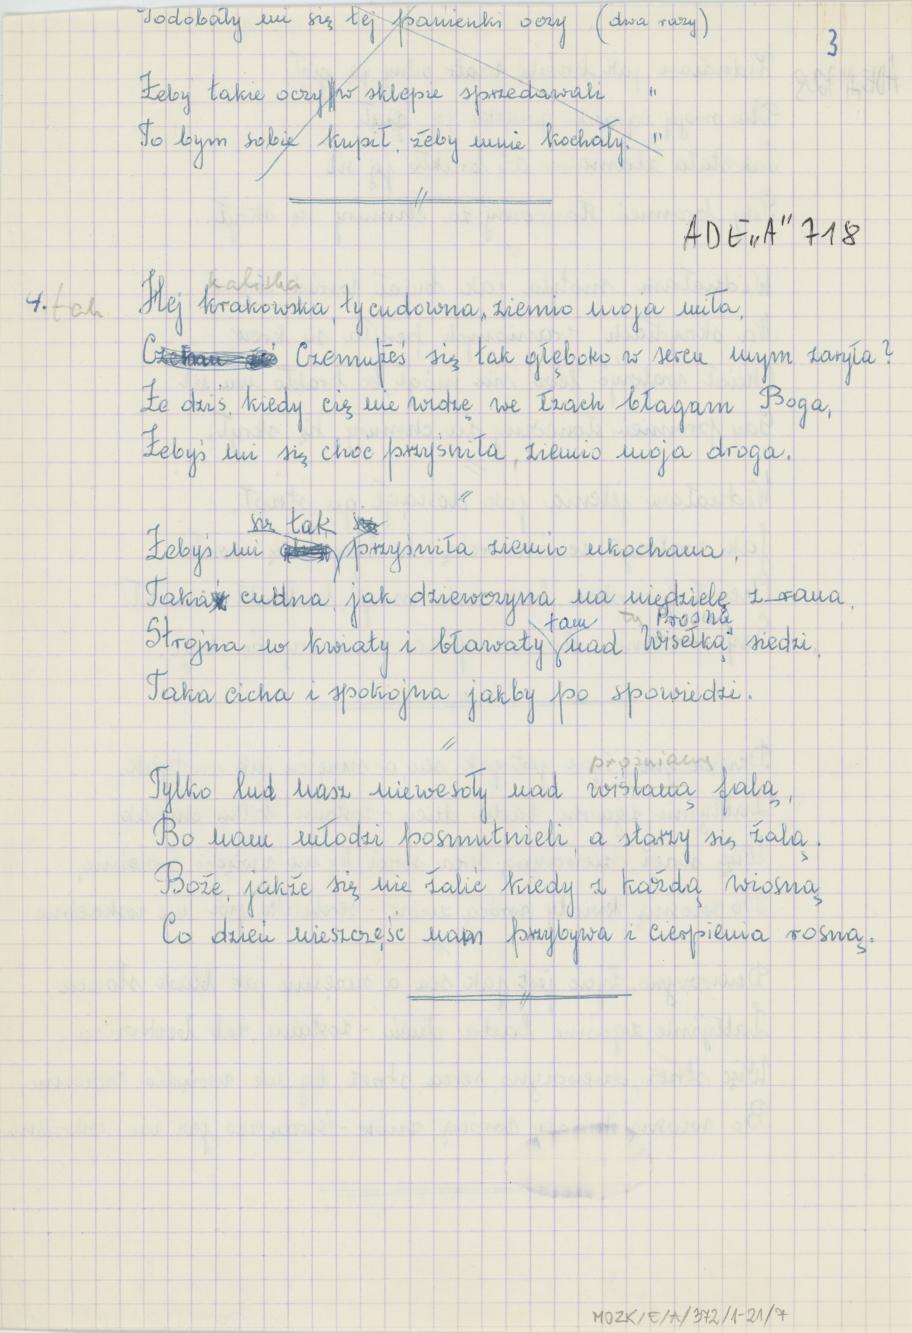 Podobały mi się tej panienki oczy (dwa razy)
3
Żeby takie oczy w sklepie sprzedawali "
To bym sobie kupił, żeby mnie kochały. "
ADE „A" 718
kaliska
4. tak Hej krakowska, ty cudowna, ziemio moja miła,
Czemużeś się tak głęboko w sercu mym zaryła?
Że dziś, kiedy cię nie widzę, we łzach błagam Boga,
Żebyś mi się choc przyśniła, ziemio moja droga.
"
się tak
Żebyś mi przyśniła ziemio ukochana,
Taka cudna, jak dziewczyna na niedzielę z rana,
tam Prosną
Strojna w kwiaty i bławaty nad Wisełką siedzi,
Taka cicha i spokojna jakby po spowiedzi.
"
prośnianą
Tylko lud nasz niewesoły nad wiślaną falą,
Bo nam młodzi posmutnieli, a starzy się żalą.
Boże, jakże się nie żalić kiedy z każdą wiosną
Co dzień nieszczęść nam przybywa i cierpienia rosną.
MOZK/E/A/372/1-21/7